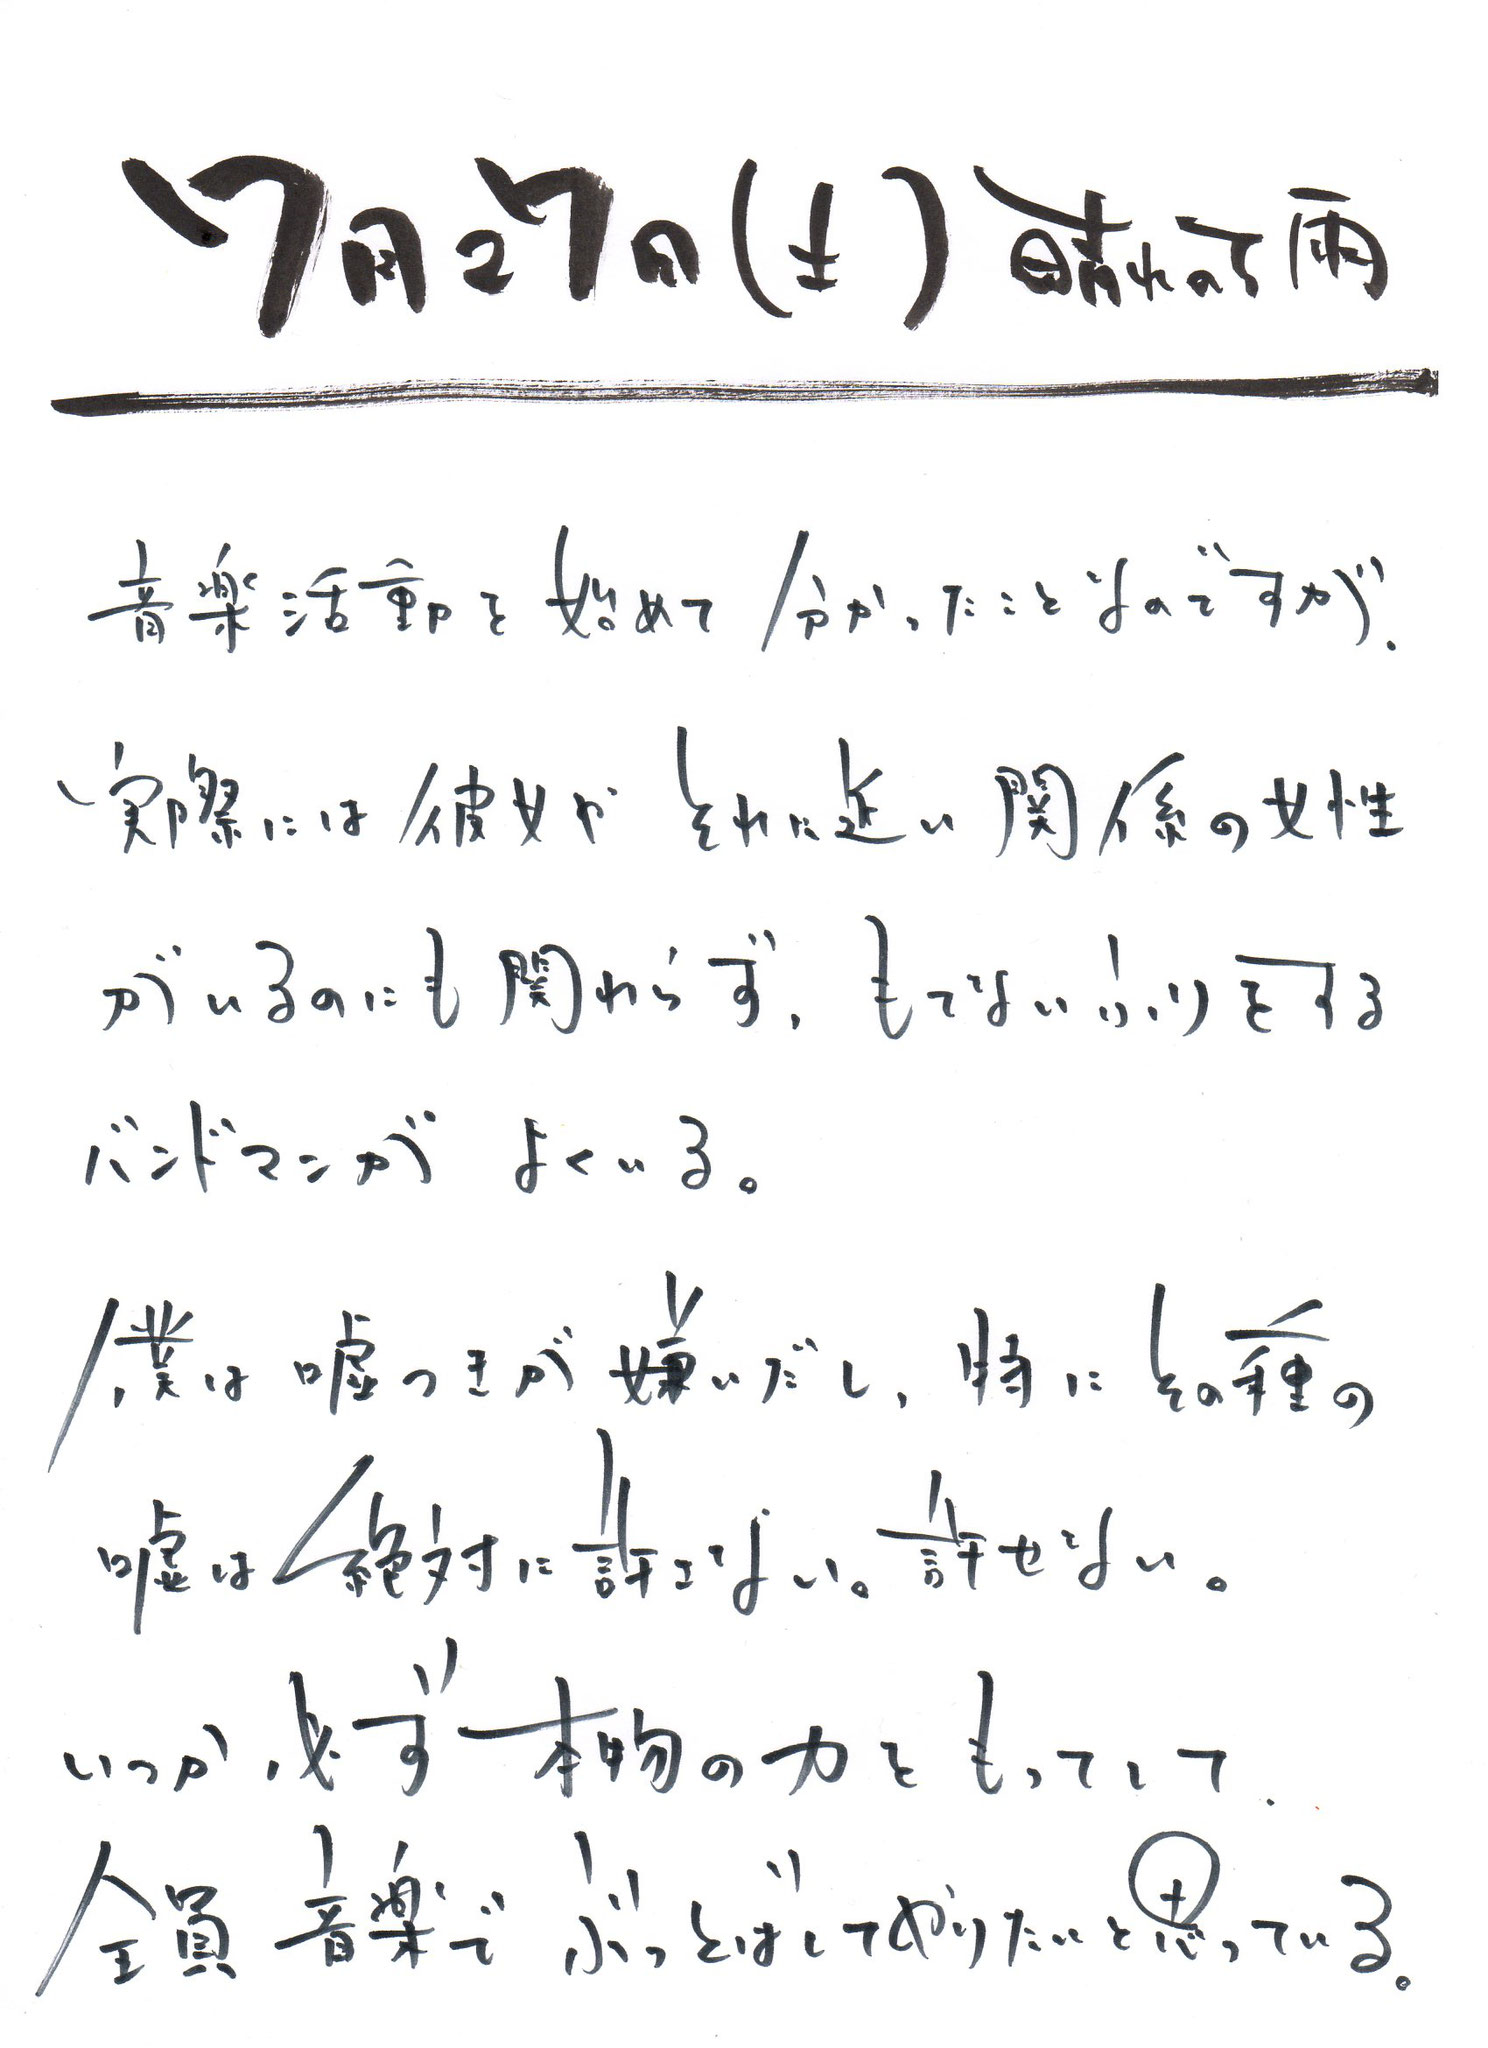 7月27日(土) 晴れのち雨
音楽活動を始めて分かったことなのですが、
実際には彼女やそれに近い関係の女性
がいるのにも関わらず、もてないふりをする
バンドマンがよくいる。
僕は嘘つきが嫌いだし、特にその種の
嘘は絶対に許さない。許せない。
いつか必ず本物の力をもってして、
全員音楽でぶっとばしてやりたいと思っている。